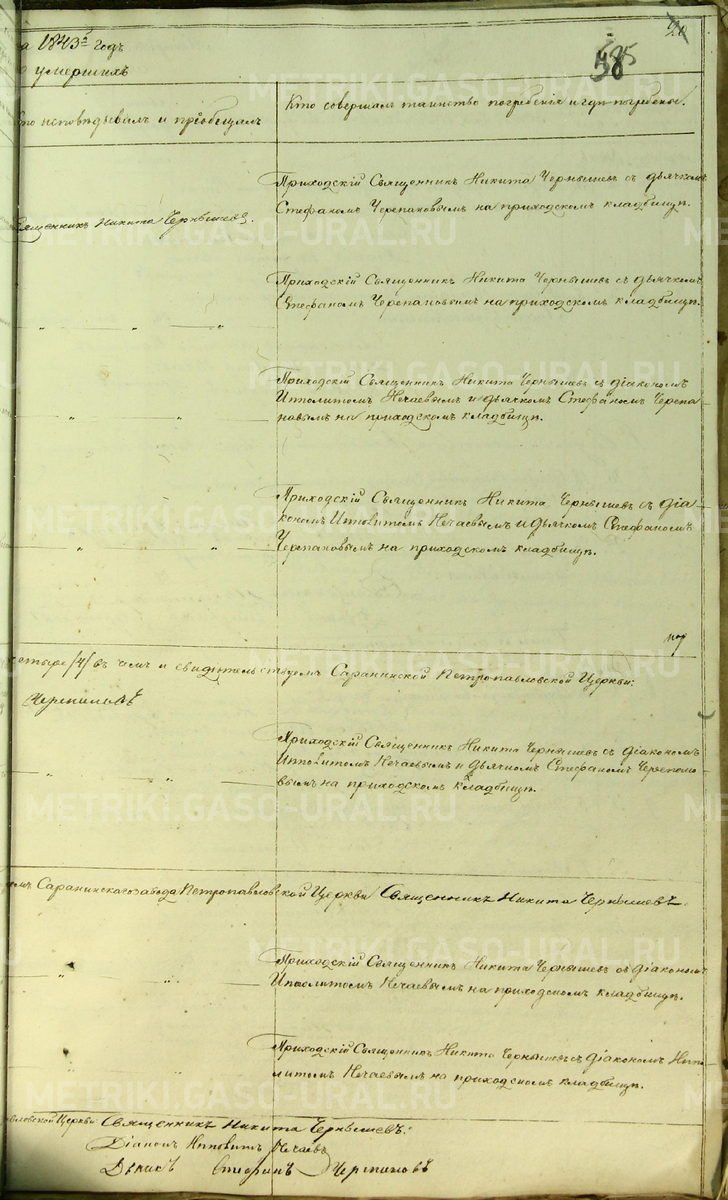 на 1843й годъ
о умершихъ
Кто исповѣдывалъ и пріобщалъ
Кто совершалъ таинство погребенія и гдѣ погребены.
Священникъ Никита Чернышевъ.
Приходскій Священникъ Никита Чернышевъ съ дьячкомъ
Стефаномъ Черепановымъ на приходскомъ кладбищѣ.
Приходскій Священникъ Никита Чернышевъ съ дьячкомъ
Стефаномъ Черепановымъ на приходскомъ кладбищѣ.
Приходскій Священникъ Никита Чернышевъ съ діакономъ
Ипполитомъ Нечаевымъ и дьячкомъ Стефаномъ Черепа
новымъ на приходскомъ кладбищѣ.
Приходскій Священникъ Никита Чернышевъ съ діа
кономъ Иполитомъ Нечаевымъ и дьячкомъ Стефаномъ
Черепановымъ на приходскомъ кладбищѣ.
четыре /4/ въ чемъ и свидѣтельствуемъ Саранинской Петропавловской Церкви:
Черепановъ
Приходскій Священникъ Никита Чернышевъ съ діакономъ
Ипполитомъ Нечаевымъ и дьячкомъ Стефаномъ Черепано
вымъ на приходскомъ кладбищѣ.
Саранинскаго завода Петропавловской Церкви Священникъ Никита Чернышевъ
Приходскій Священникъ Никита Чернышевъ съ діакономъ
Ипполитомъ Нечаевымъ на приходскомъ кладбищѣ.
Приходскій Священникъ Никита Чернышевъ съ діакономъ Иппо
литомъ Нечаевымъ на приходскомъ кладбищѣ.
Церкви Священникъ Никита Чернышевъ:
Діаконъ Ипполитъ Нечаевъ
Дьячекъ Стефанъ Черепановъ
METRIKI.GASO-URAL.RU